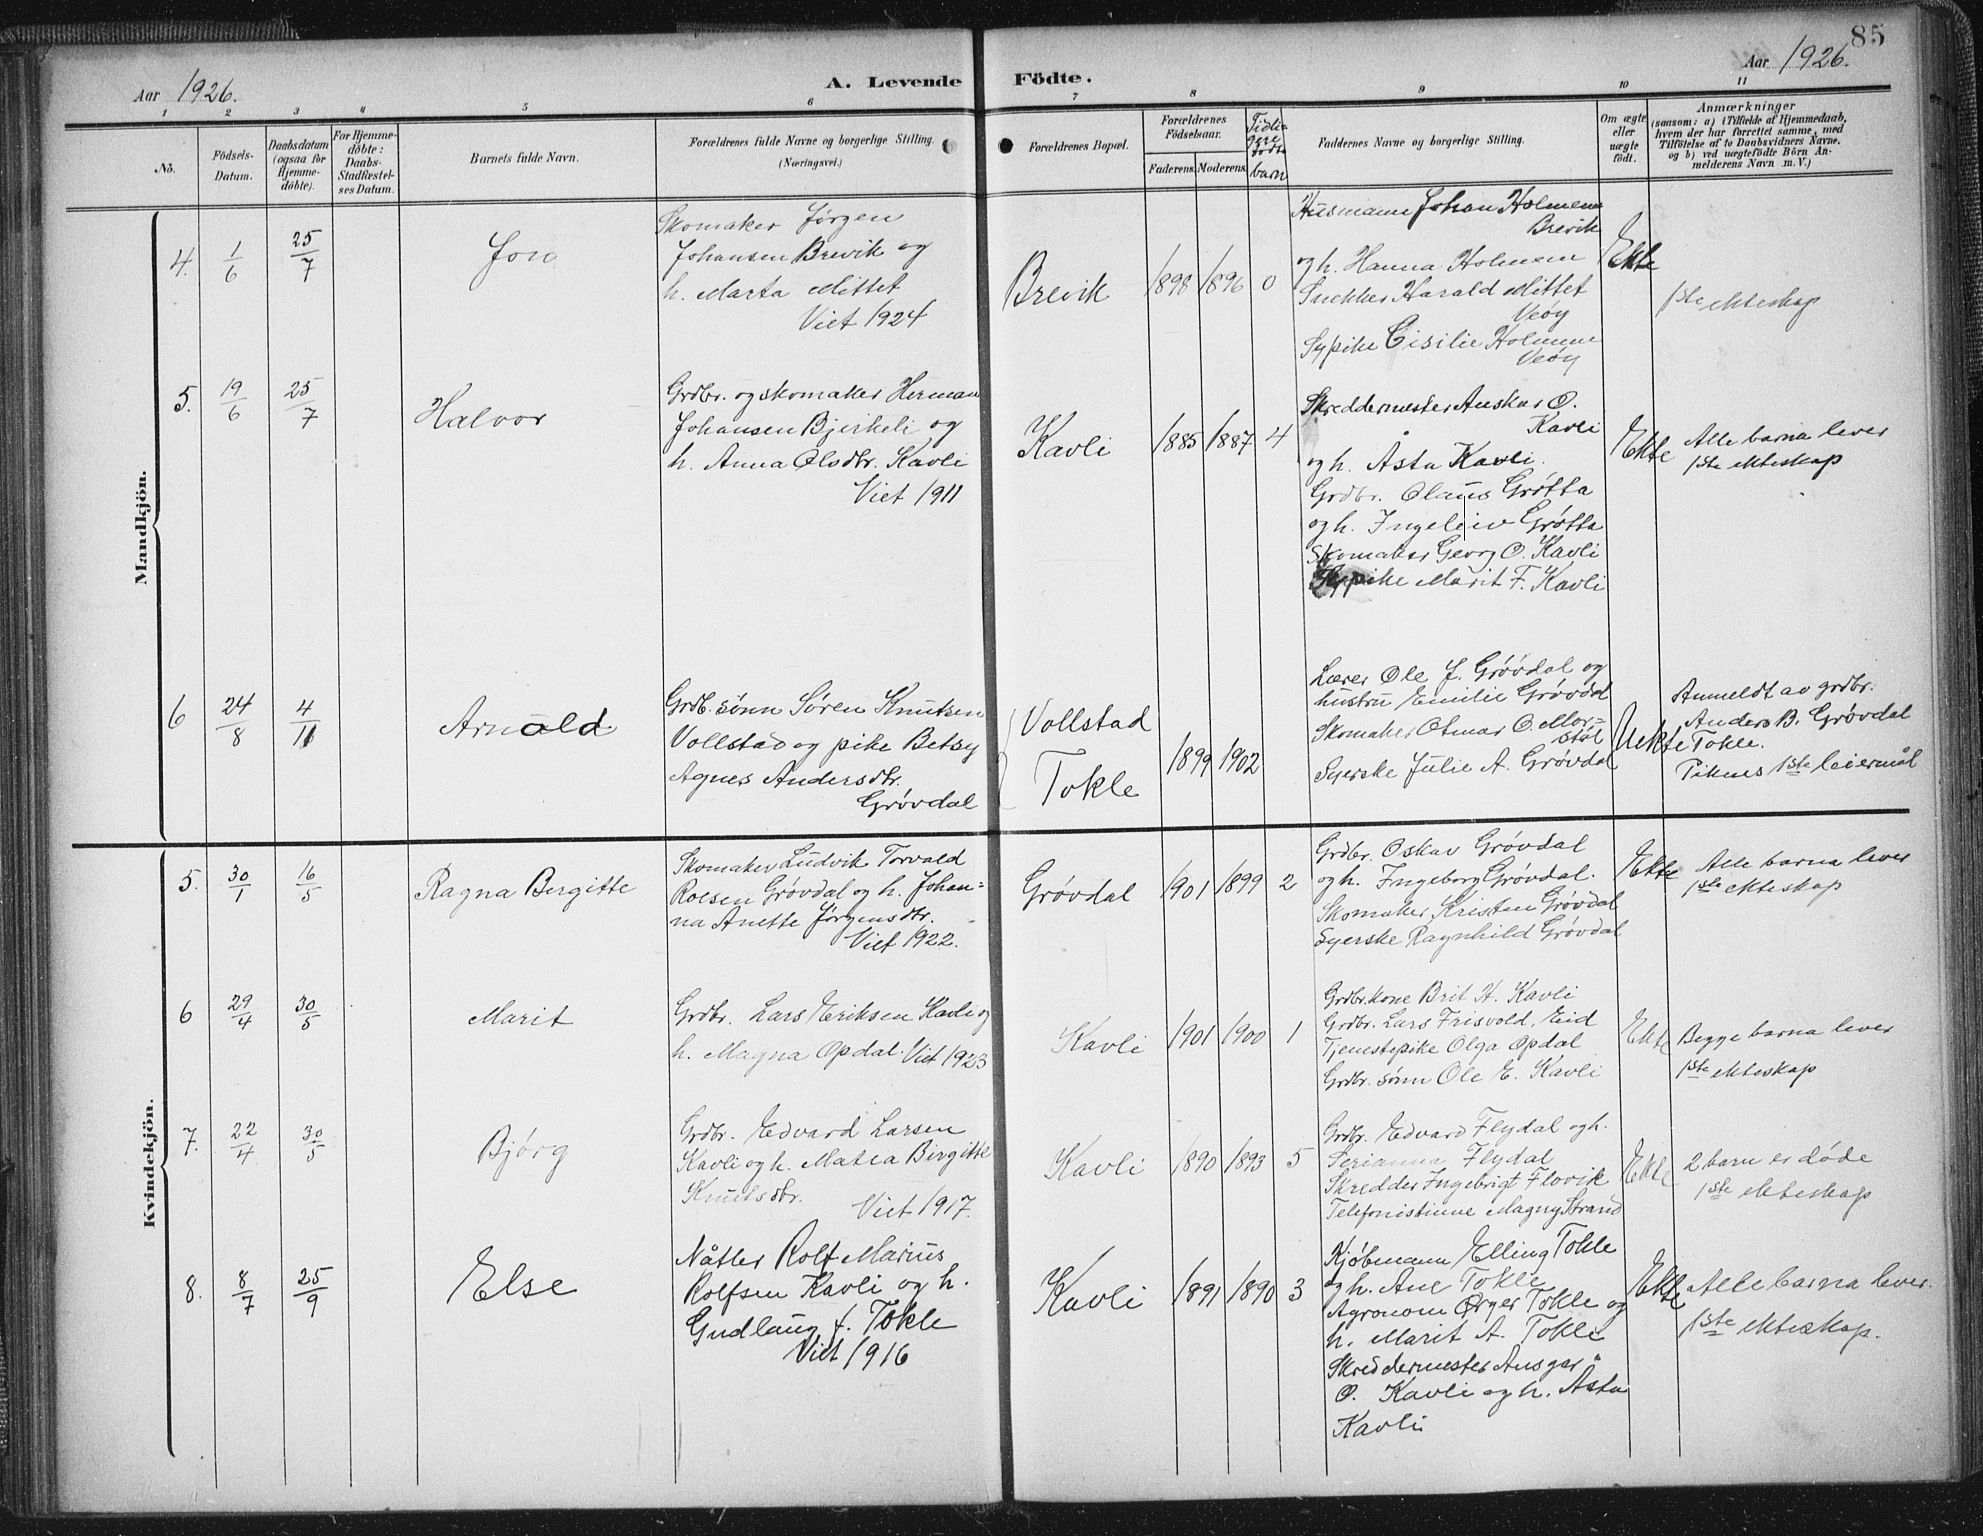 85
Aar 1926.
A. Levende Födte.
Aar 1926.
1 2 3 4 5 6 7 8 9 10 11
No.
Födsels-
Datum.
Daabsdatum
(ogsaa for
Hjemme-
döbte).
For Hjemme-
döbte:
Daabs-
Stadfæstel-
ses Datum.
Barnets fulde Navn.
Forældrenes fulde Navne og borgerlige Stilling.
(Næringsvei.)
Forældrenes Bopæl.
Forældrenes
Födselsaar.
Faderens. Moderens.
Tidli-
gere
födte
barn
Faddernes Navne og borgerlige Stilling.
Om ægte
eller
uægte
födt.
Anmærkninger
(saasom: a) i Tilfælde af Hjemmedaab,
hvem der har forrettet samme, med
Tilföielse af to Daabsvidners Navne,
og b) ved uægtefödte Börn An-
melderens Navn m. V.)
Mandkjön.
4. 1/6 25/7
Jon
Skomaker Jørgen
Johansen Brevik og
h. Marta Mittet
Viet 1924
Brevik 1898 1896 0
Husmann Johan Holmem
Brevik
og h. Hanna Holmem
Snekker Harald Mittet
Veøy
Sypike Cisilie Holmem
Veøy
Ekte
1ste ekteskap
5. 19/6 25/7
Halvor
Grdbr. og skomaker Herman
Johansen Bjerkeli og
h. Anna Olsdtr. Kavli
Viet 1911
Kavli 1885 1887 4
Skreddermester Anskar O.
Kavli
og h. Åsta Kavli.
Grdbr. Olaus Grøtta
og h. Ingeleiv Grøtta
Skomaker Georg O. Kavli
Sypike Marit F. Kavli
Ekte
Alle barna lever
1ste ekteskap
6 24/8 4/11
Arnold
Grdb. sønn Søren Knutsen
Vollstad og pike Betsy
Agnes Andersdtr.
Grøvdal
Vollstad
Tokle
1899 1902
Lærer Ole J. Grøvdal og
hustru Emilie Grøvdal
Skomaker Otmar O. Mor-
støl
Syerske Julie A. Grøvdal
Uekte
Anmeldt av grdbr.
Anders B. Grøvdal
Tokle.
Pikens 1ste leiermål
Kvindekjön.
5. 30/1 16/5
Ragna Bergitte
Skomaker Ludvik Torvald
Roesen Grøvdal og h. Johan-
na Anette Jørgensdtr.
Viet 1922.
Grøvdal 1901 1899 2
Grdbr. Oskar Grøvdal
og h. Ingeborg Grøvdal.
Skomaker Kristen Grøvdal
Syerske Ragnhild Grøvdal
Ekte
Alle barna lever
1ste ekteskap
6 29/4 30/5
Marit
Grdbr. Lars Eriksen Kavli og
h. Magna Opdal. Viet 1923
Kavli 1901 1900 1
Grdbr. kone Brit H. Kavli
Grdbr. Lars Frisvold, Eid
Tjenestepike Olga Opdal
Grdbr. sønn Ole E. Kavli
Ekte
Begge barna lever
1ste ekteskap
7. 22/4 30/5
Bjørg
Grdbr. Edvard Larsen
Kavli og h. Matea Birgitte
Knutsdtr.
Viet 1917.
Kavli 1890 1893 5
Grdbr. Edvard Flydal og h.
Serianna Flydal
Skredder Ingebrigt Flovik
Telefonistinne Magny Strand
Ekte
2 barn er døde
1ste ekteskap
8. 8/7 25/9
Else
Nåtler Rolf Marius
Rolfsen Kavli og h.
Gudlaug f. Tokle
Viet 1916
Kavli 1891 1890 3
Kjøbmann Elling Tokle
og h. Ane Tokle
Agronom Ørger Tokle og
h. Marit A. Tokle
Skreddermester Ansgar
O. Kavli og h. Åsta
Kavli
Ekte
Alle barna lever.
1ste ekteskap.